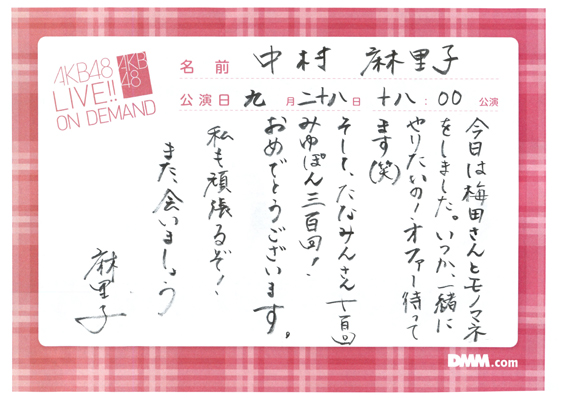 AKB48
LIVE!!
ON DEMAND
AKB
48
名前 中村 麻里子
公演日 九月二十八日 十八:00 公演
今日は梅田さんとモノマネ
をしました。いつか、一緒に
やりたいの!オファー待って
ます(笑)
そして、たなみんさん 十百回
みゆぽん三百回!
おめでとうございます。
私も頑張るぞ!
また、会いましょう
麻里子
DMM.com